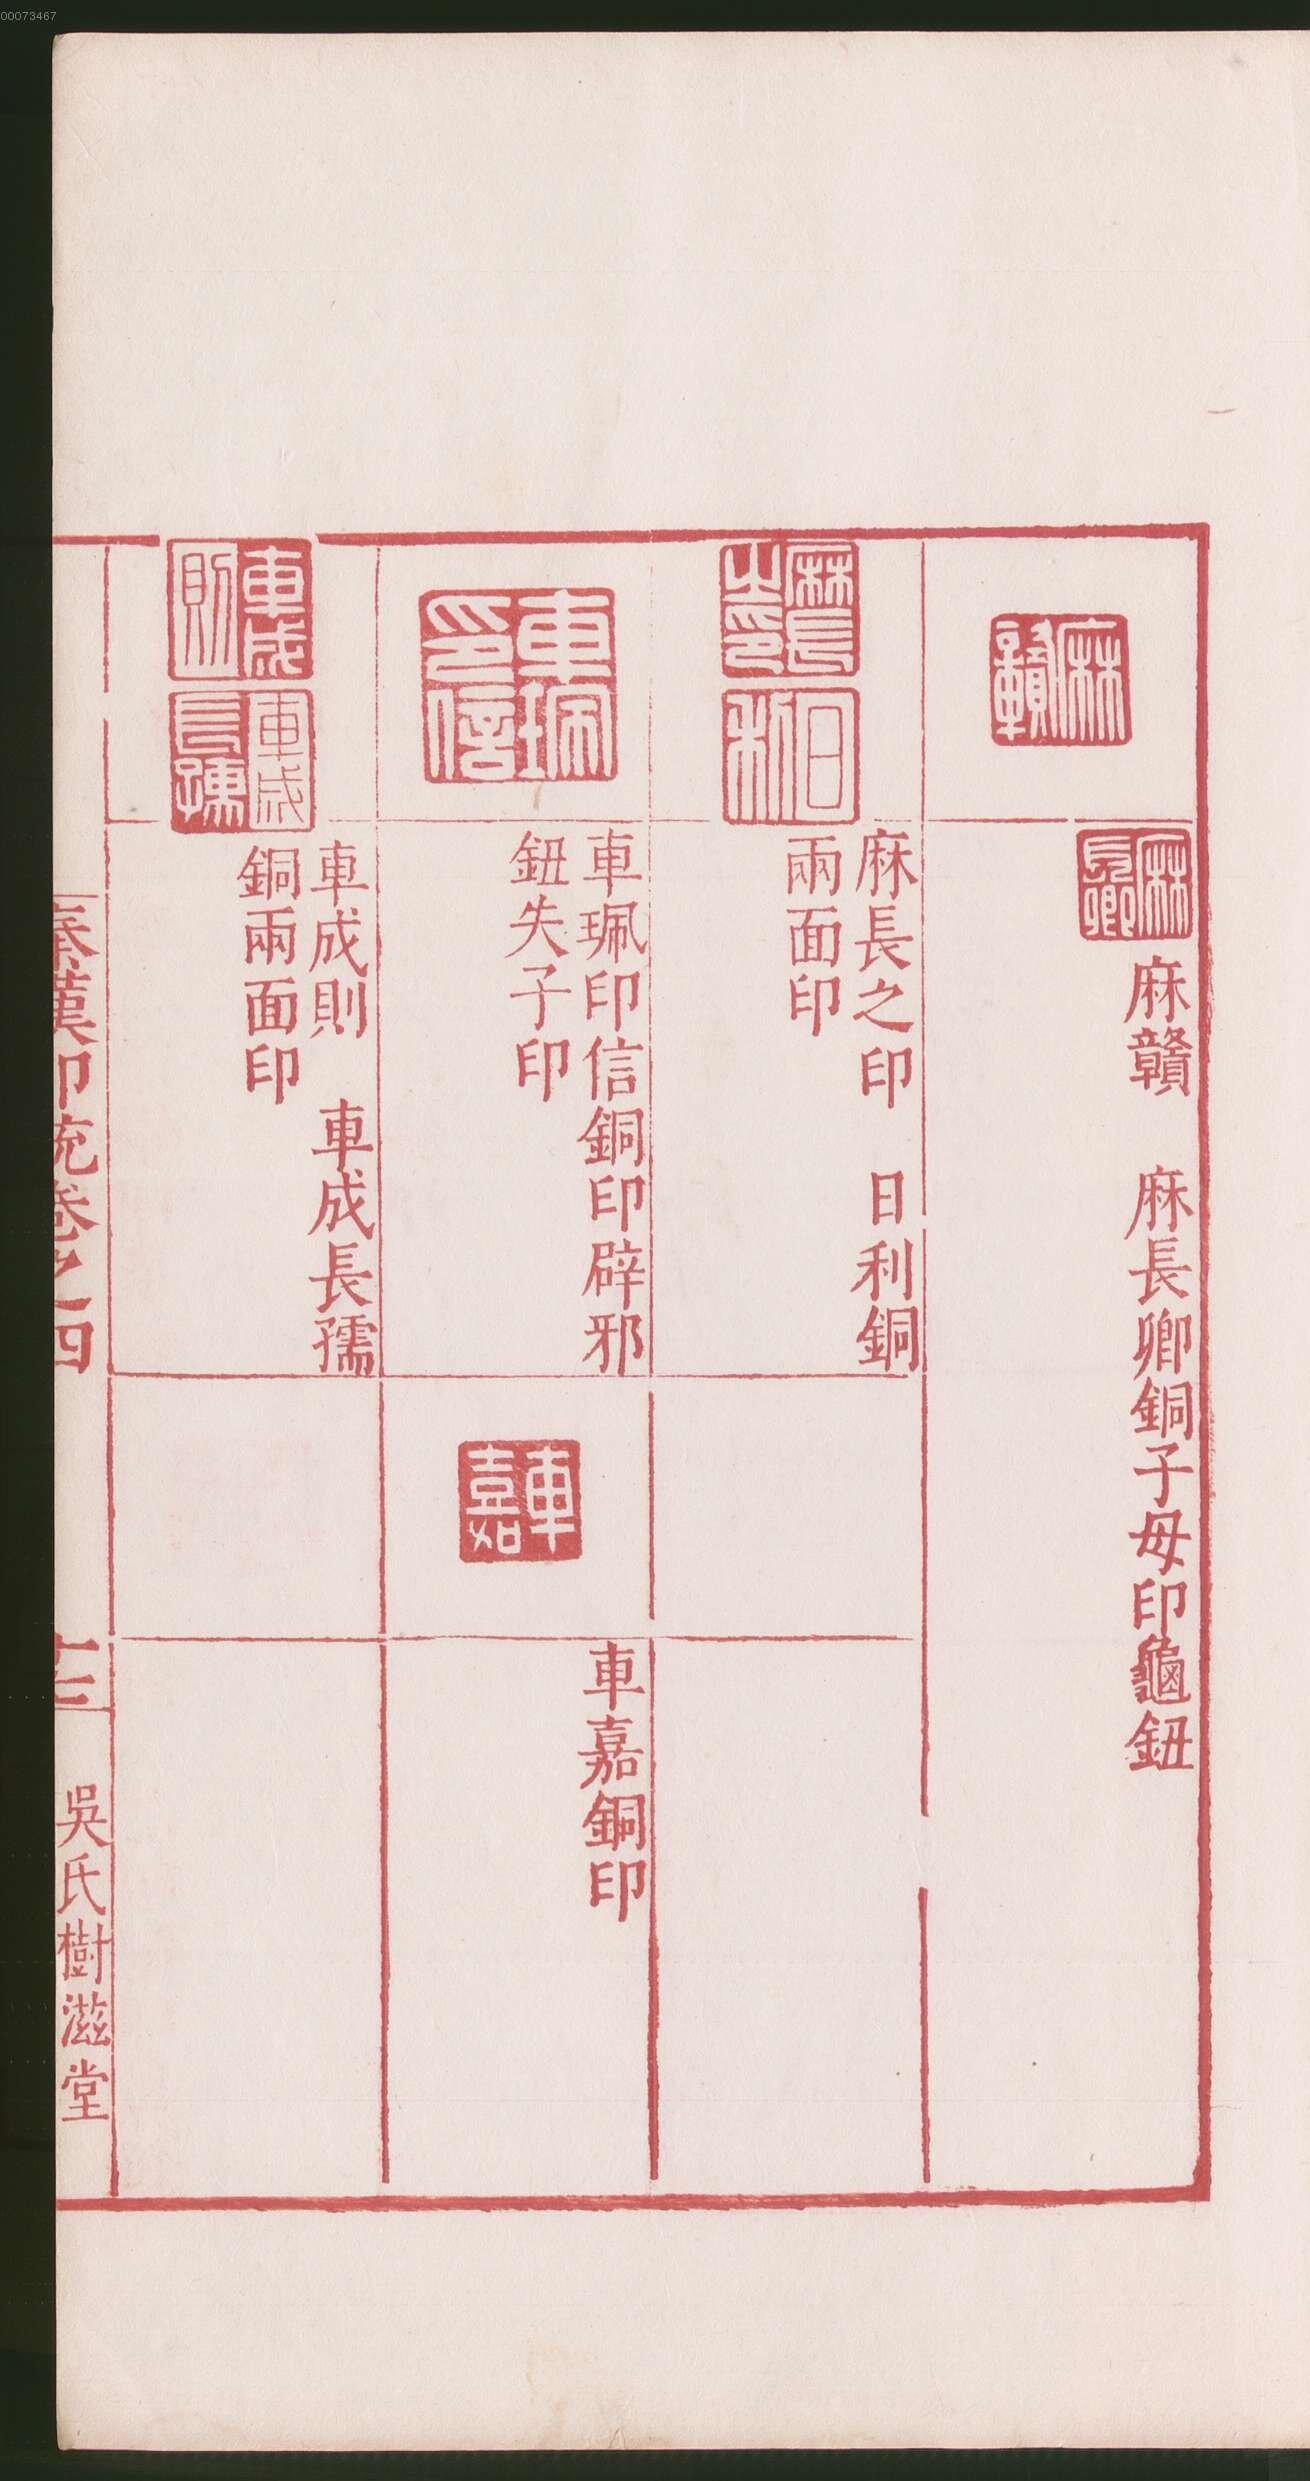 00073467
麻贛
麻長卿
麻贛　麻長卿銅子母印龜鈕
麻長之印
日利
麻長之印　日利銅
兩面印
車珮印信
車珮印信銅印辟邪
鈕失子印
車嘉
車嘉銅印
車成則
車成長孺
車成則　車成長孺
銅兩面印
秦漢印統卷之四
十三
吳氏樹滋堂